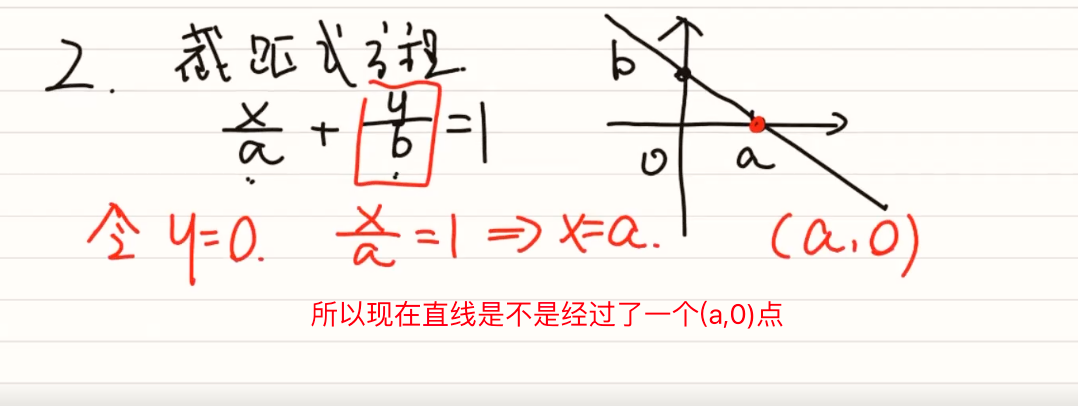 2. 截距式方程
x/a + y/b = 1
b
0 a
令 y=0. x/a = 1 ⇒ x=a. (a,0)
所以现在直线是不是经过了一个(a,0)点